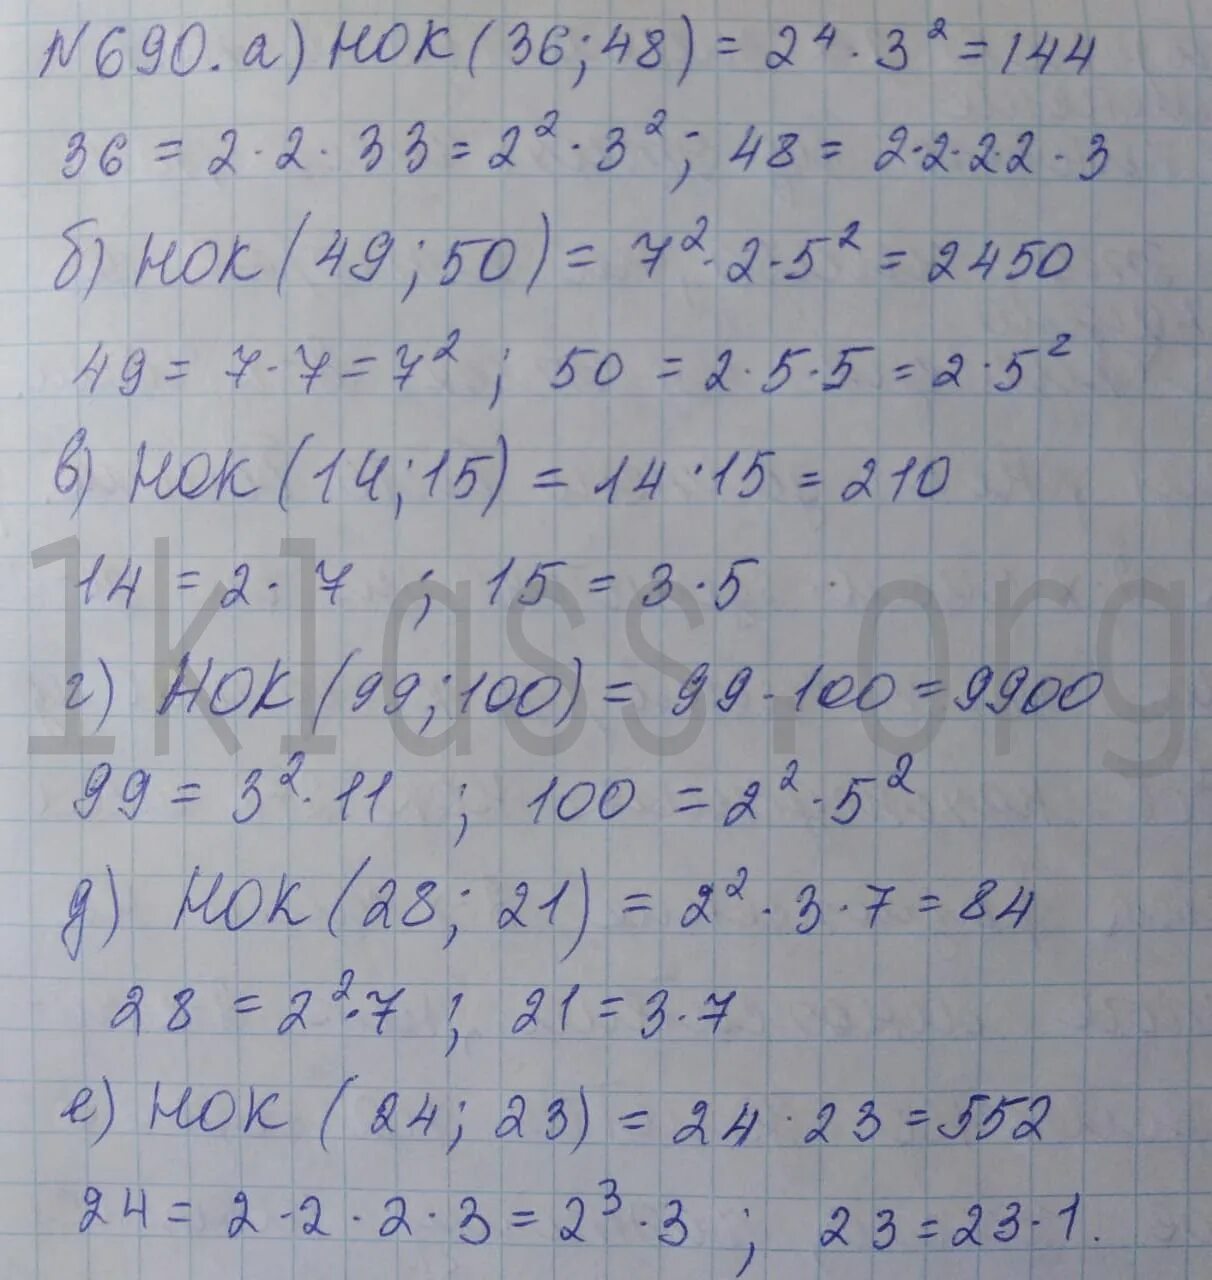 №690. а) НОК (36; 48) = 2⁴ · 3² = 144
36 = 2 · 2 · 3 3 = 2² · 3²; 48 = 2·2·2·2·3
б) НОК (49; 50) = 7² · 2 · 5² = 2450
49 = 7 · 7 = 7² ; 50 = 2 · 5 · 5 = 2 · 5²
в) НОК (14; 15) = 14 · 15 = 210
14 = 2 · 7 ; 15 = 3 · 5
1klass.org
г) НОК (99; 100) = 99 · 100 = 9900
99 = 3² · 11 ; 100 = 2² · 5²
д) НОК (28; 21) = 2² · 3 · 7 = 84
28 = 2² · 7 ; 21 = 3 · 7
е) НОК (24; 23) = 24 · 23 = 552
24 = 2 · 2 · 2 · 3 = 2³ · 3 ; 23 = 23 · 1.